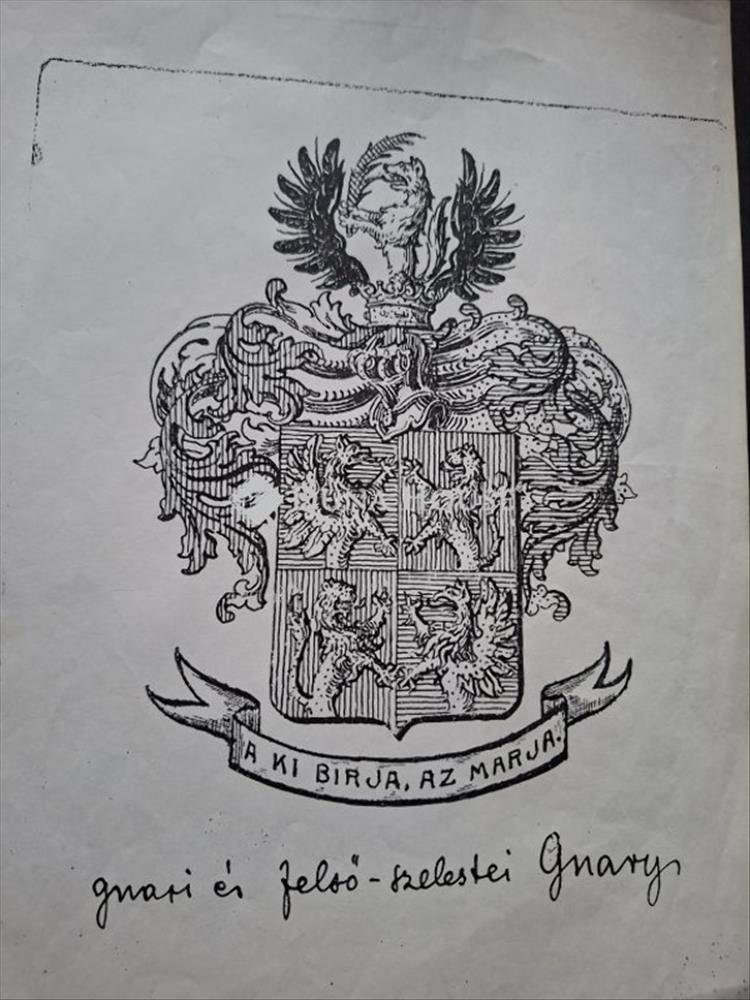 A KI BIRJA, AZ MARJA.
gnari és felső-szelestei Gnary